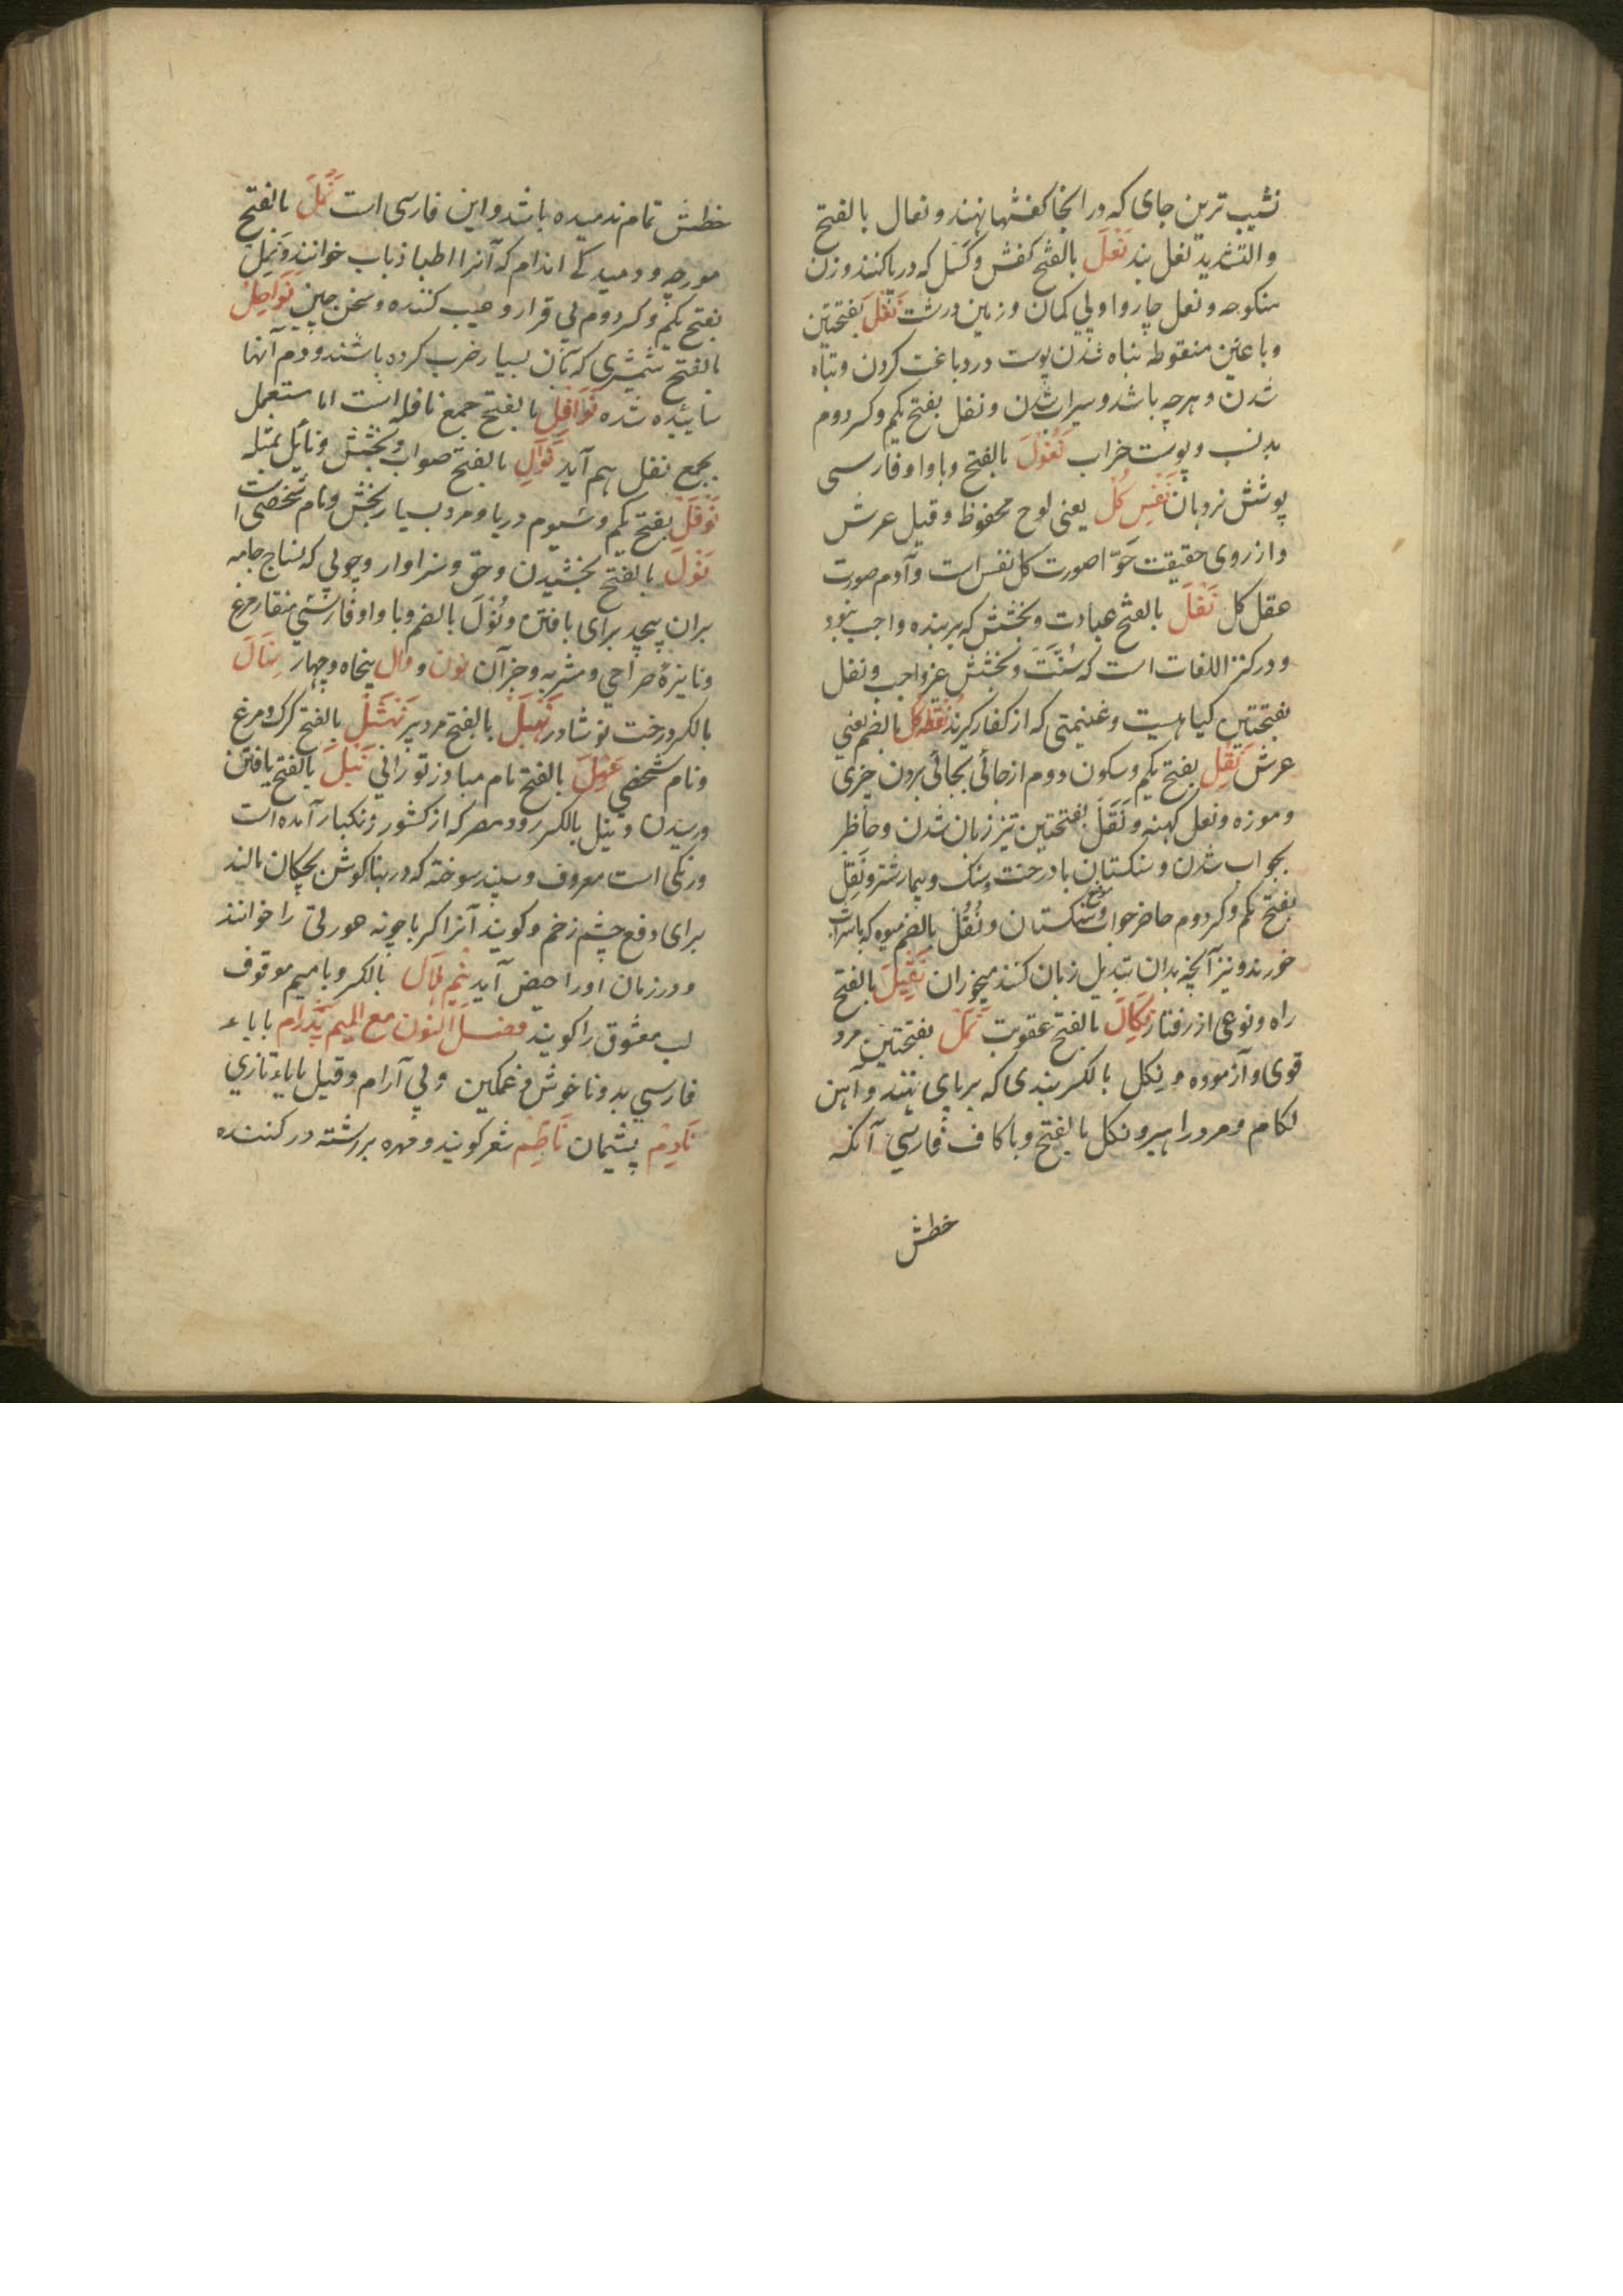 نشیب ترین جای که در انجا کفشها نهند و نعال بالفتح
والتشدید نعل بند نَعْلَ بالفتح کفش و کسل که در پا کنند و زن
منکوحه و نعل چاروا و پی کمان و زمین درشت نَغَلَ بفتحتین
و با عین منقوطه تباه شدن پوست در دباغت کردن و تباه
شدن و هرچه باشد و سیراب شدن و نغل بفتح یکم و کسر دوم
بد نسب و پوست خراب نَغُولَ بالفتح و با واو فارسی
پوشش نردبان نَفْسِ کُلّ یعنی لوح محفوظ و قیل عرش
و از روی حقیقت حَوّا صورت کل نفس است و آدم صورت
عقل کل نَفْلَ بالفتح عبادت و بخشش که بر بنده واجب نبود
و در کنز اللغات است که سُنَّتَ و بخشش غیر واجب و نفل
بفتحتین کیاهیست و غنیمتی که از کفار کیرند نُقْطَه کُلّ بالضم یعنی
عرش نَقْلِ بفتح یکم و سکون دوم از جائی بجائی بردن چیزی
و موزه و نعل کهنه و نَقَلْ بفتحتین تیز زبان شدن و حاظر
بجواب شدن و سنکستان با درخت و سنک و بیمار شتر و نَقِلْ
بفتح یکم و کسر دوم حاضر جواب و سنکستان و نُقُلْ بالضم میوه که با شراب
خورند و نیز آنچه بدان تبدیل زبان کنند میخوران نَقِیلَ بالفتح
راه و نوعی از رفتار نَکَالَ بالفتح عقوبت نَکَلْ بفتحتین مرد
قوی و آزموده و نِکل بالکسر بندی که بر پای نهند و آهن
لکام و مرد راهبر و نکل بالفتح و با کاف فارسی آنکه
خطش
خطش تمام ندمیده باشد و این فارسی است نَمْلَ بالفتح
مورچه و دمیدکی اندام که آنرا اطبا ذباب خوانند و نَمِلْ
بفتح یکم و کسر دوم بی قرار و عیب کننده و سخن چین نَوَاحِلْ
بالفتح شمشیری که بآن بسیار ضرب کرده باشند و دم آنها
سائیده شده نَوَافِلِ بالفتح جمع نافله است اما مستعمل
بجمع نفل هم آید نَوَالِ بالفتح صواب و بخشش و نایل بمثله
نَوْفَلَ بفتح یکم و سیوم دریا و مرد بسیار بخش و نام شخصی است
نَوْلَ بالفتح بخشیدن و حق و سزاوار و چوبی که نساج جامه
بران پیچد برای بافتن و نُوْلَ بالضم و با واو فارسی منقار مرغ
و نایزهٔ صراحی و مشربه و جز آن نون و دال پنجاه و چهار نِهَالَ
بالکسر درخت نو شاد در نَهْبَلَ بالفتح مرد پیر نَهْشَلْ بالفتح کرک و مرغ
و نام شخصی بالفتح نام مبارز تورانی نَیْلَ بالفتح یافتن
و رسیدن و نیل بالکسر رود مصر که از کشور زنکبار آمده است
و رنکی است معروف و سپند سوخته که در بناکوش بچکان مالند
برای دفع چشم زخم و کویند آنرا کر با چونه هورتی را خوانند
و در زمان او را حیض آید نِیْم هِلَالَ بالکسر و با میم موقوف
لب معشوق را کویند فصل النون مع المیم نَپَدْرام با باء
فارسی بد و ناخوش و غمکین و بی آرام و قیل با باء تازی
نَادِمْ پشیمان نَاظِمْ شعر کویند و مهره بر رشته در کننده